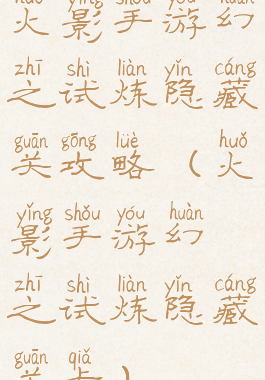 huǒ yǐng shǒu yóu huàn
火影手游幻
zhī shì liàn yǐn cáng
之试炼隐藏
guān gōng lüè huǒ
关攻略（火
yǐng shǒu yóu huàn
影手游幻
zhī shì liàn yǐn cáng
之试炼隐藏
guān qiǎ
关卡）